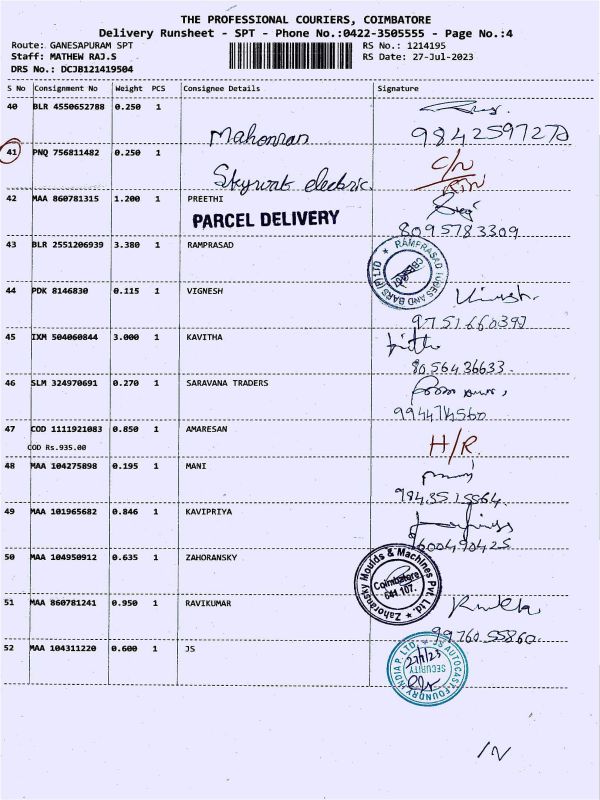 THE PROFESSIONAL COURIERS, COIMBATORE
Delivery Runsheet - SPT - Phone No.:0422-3505555 - Page No.:4
Route: GANESAPURAM SPT
RS No.: 1214195
Staff: MATHEW RAJ.S
RS Date: 27-Jul-2023
DRS No.: DCJB121419504
S No Consignment No Weight PCS Consignee Details Signature
40 BLR 4550652788 0.250 1
Mahonran 9842597270
41 PNQ 756811482 0.250 1 C/N
Skywat electric
42 MAA 860781315 1.200 1 PREETHI
PARCEL DELIVERY
8095783309
43 BLR 2551206939 3.380 1 RAMPRASAD
RAMPRASAD TUBES AND BARS (P) LTD
44 PDK 8146830 0.115 1 VIGNESH
9751660392
45 IXM 504060844 3.000 1 KAVITHA
8056436633
46 SLM 324970691 0.270 1 SARAVANA TRADERS
9944714560
47 COD 1111921083 0.850 1 AMARESAN
COD Rs.935.00 H/R
48 MAA 104275898 0.195 1 MANI
9843515564
49 MAA 101965682 0.846 1 KAVIPRIYA
600490425
50 MAA 104950912 0.635 1 ZAHORANSKY
Zahoransky Moulds & Machines Pvt. Ltd.
Coimbatore
641 107.
51 MAA 860781241 0.950 1 RAVIKUMAR
99760 55860
52 MAA 104311220 0.600 1 JS
JS AUTOCAST FOUNDRY INDIA P. LTD.
27/7/23
SECURITY